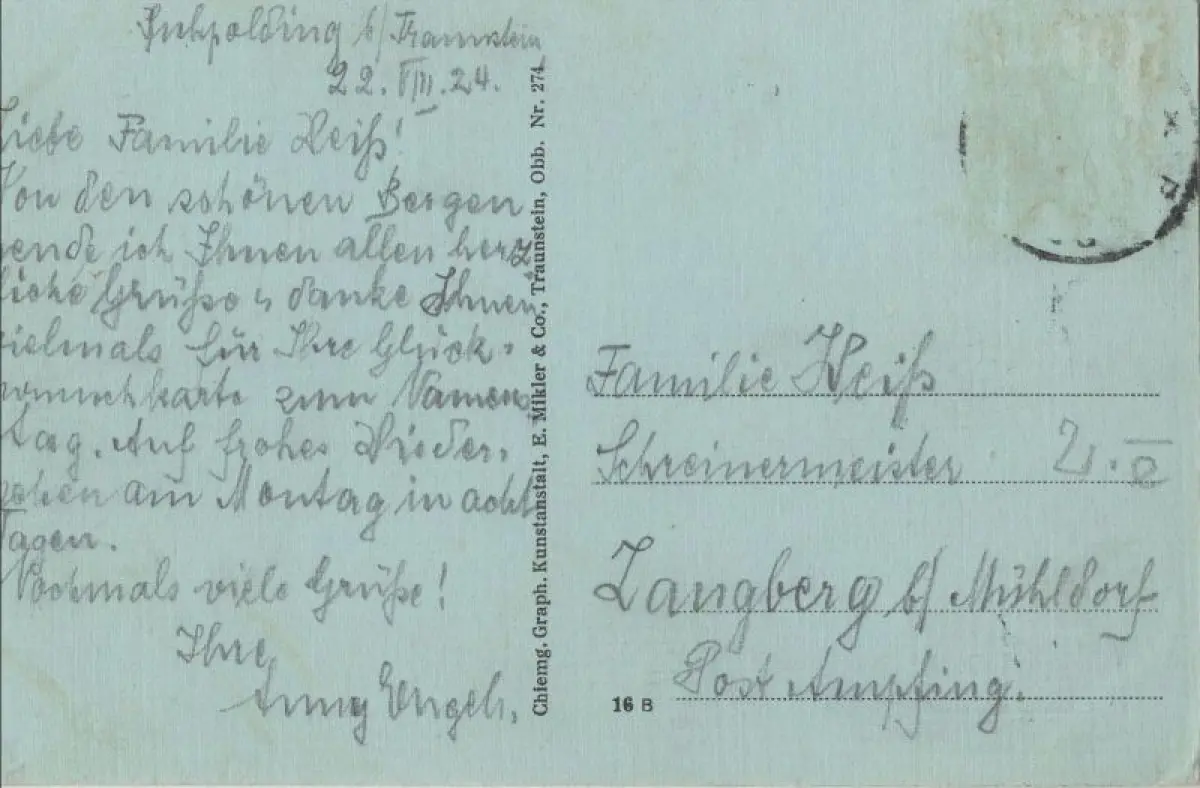 Ruhpolding b/ Traunstein
22. VIII. 24.
Liebe Familie Heiß!
Von den schönen Bergen
sende ich Ihnen allen herz
liche Grüße u danke Ihnen
vielmals für Ihre Glück-
wunschkarte zum Namens
tag. Auf frohes Wieder-
sehen am Montag in acht
Tagen.
Nochmals viele Grüße!
Ihre
Anny
Chiemg. Graph. Kunstanstalt, E. Mikler & Co., Traunstein, Obb. Nr. 274
Familie Heiß
Schreinermeister
Langberg b/ Mühldorf
Post Ampfing.
16 B